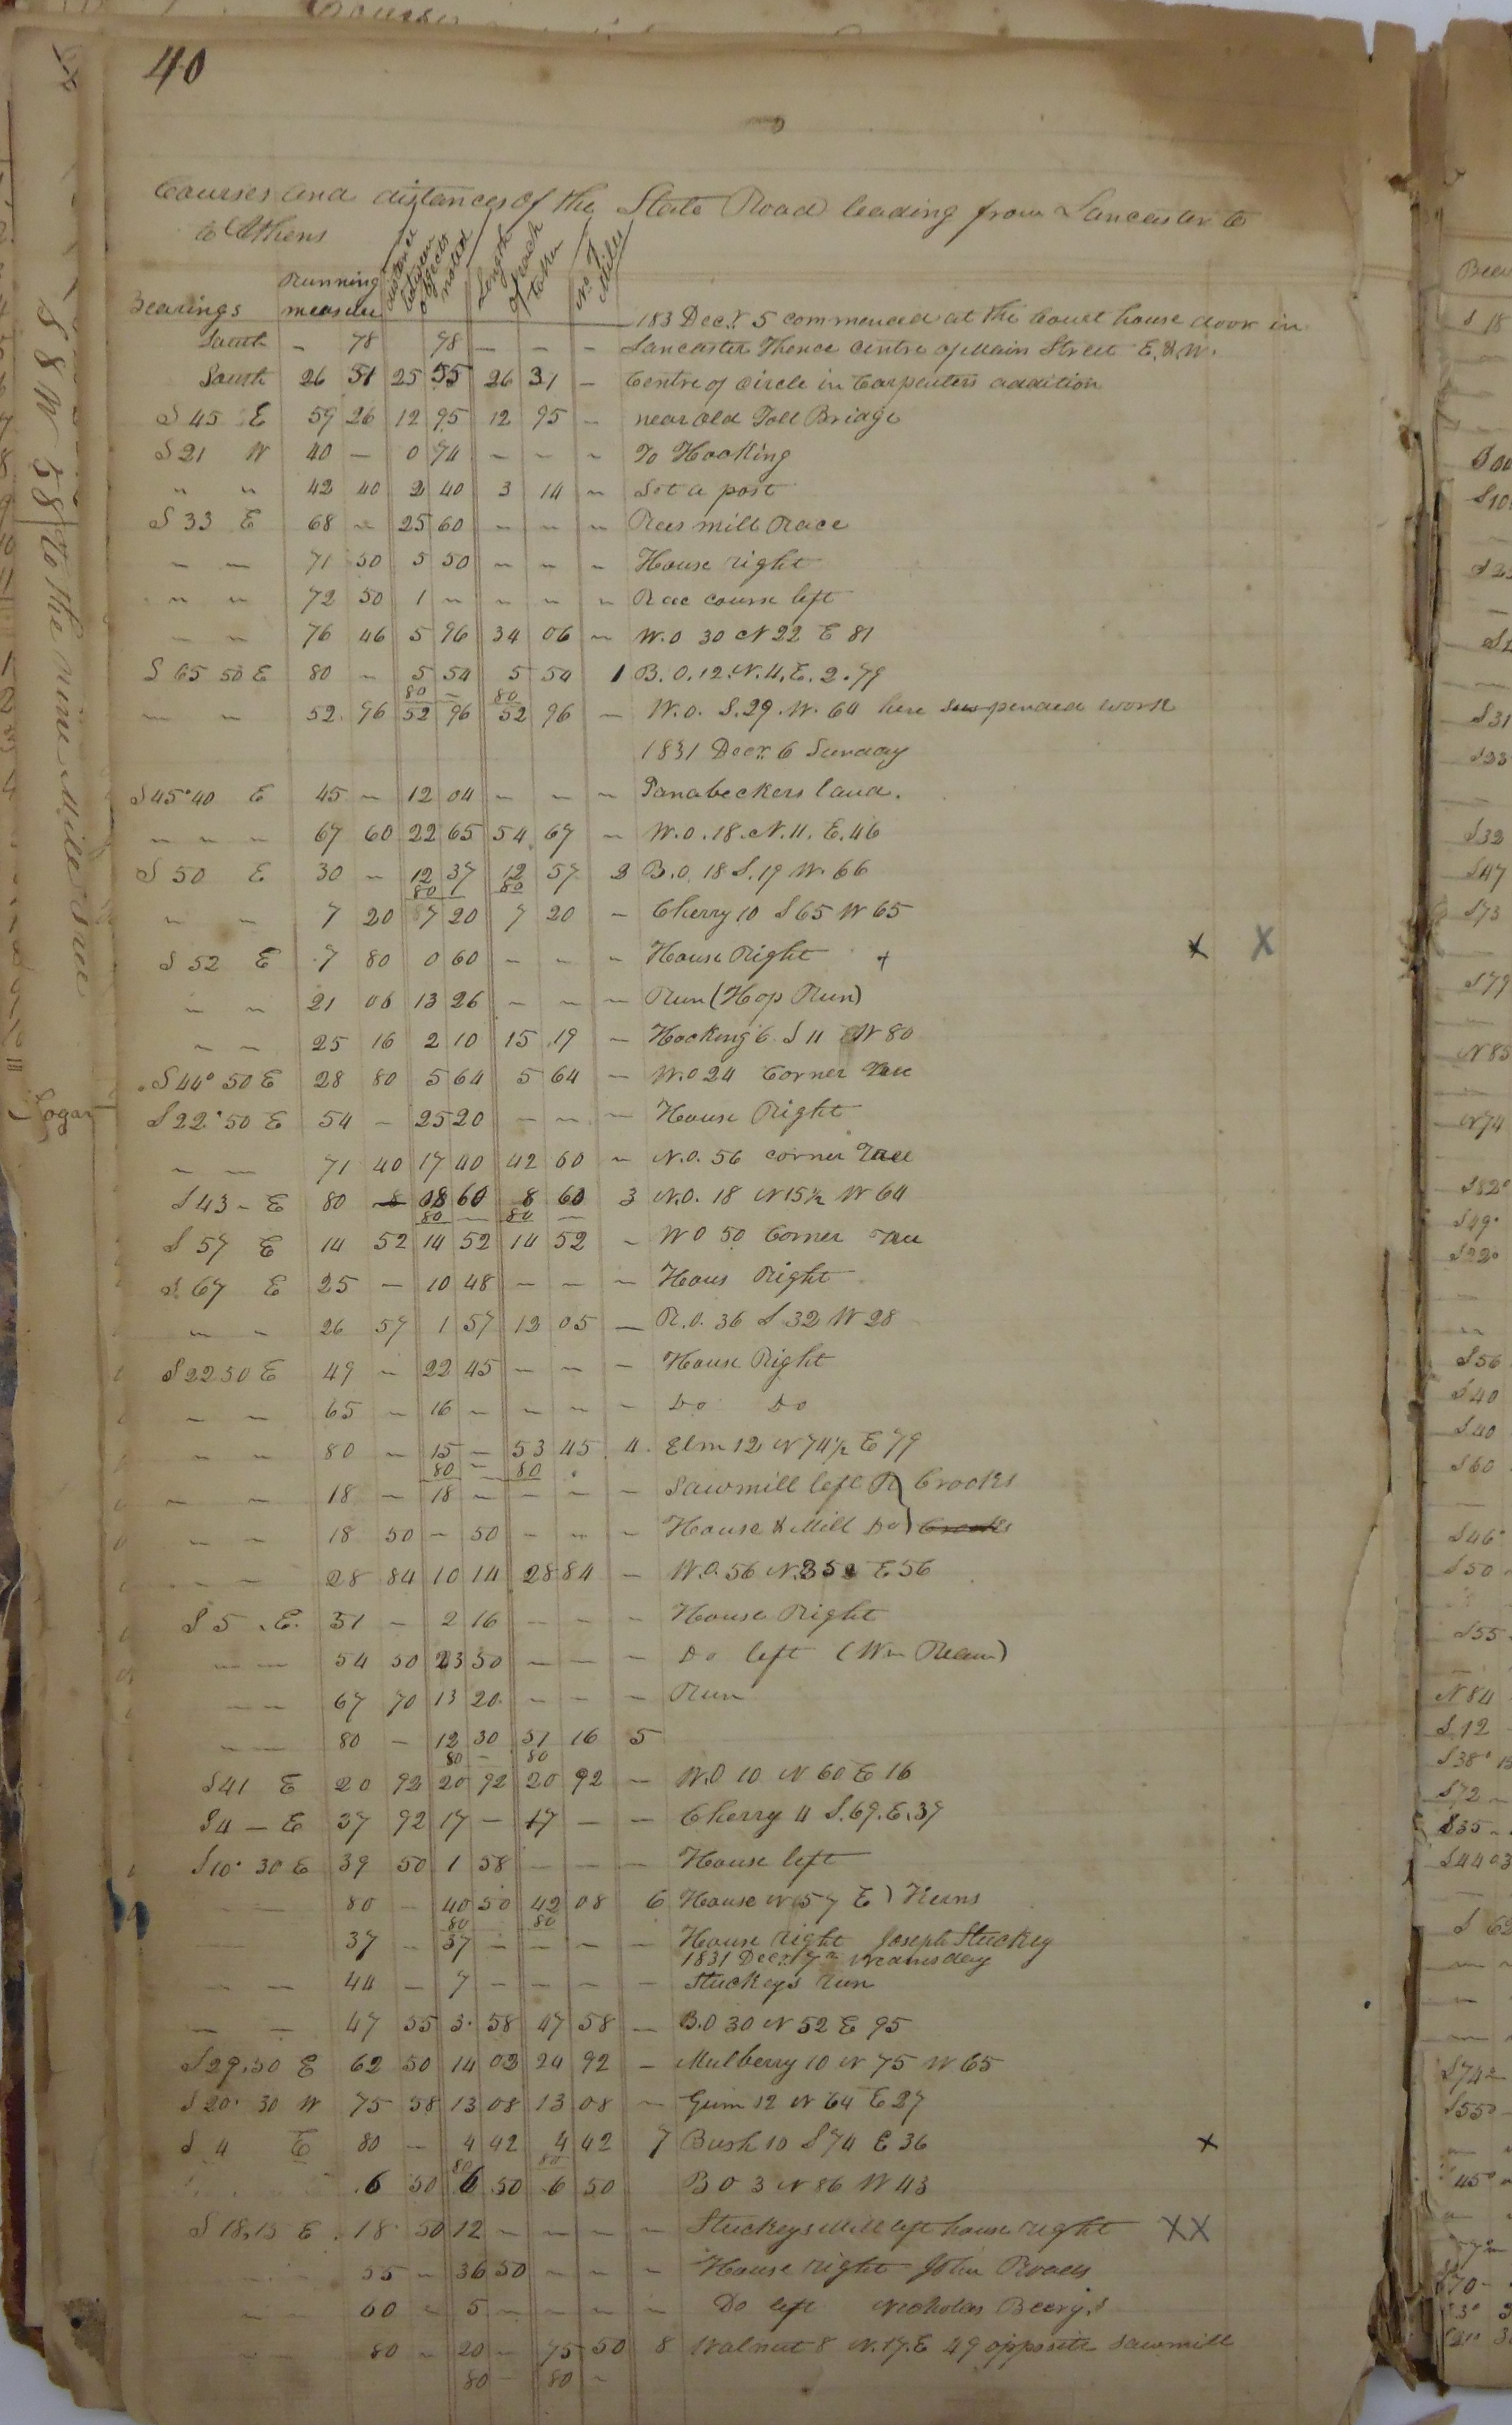 40
Courses and distances of the State Road leading from Lancaster to
to Athens
Bearings Running measure distance between objects noted Length of each taken No of Miles
183 Decr. 5 commenced at the Court house door in
South – 78 78 – – – Lancaster Thence centre of Main Street E. & W.
South 26 51 25 55 26 31 – Centre of circle in Carpenters addition
S 45 E 59 26 12 95 12 95 – near old Toll Bridge
S 21 W 40 – 0 74 – – – To Hocking
" " 42 40 2 40 3 14 – Set a post
S 33 E 68 – 25 60 – – – Rees mill Race
– – 71 50 5 50 – – – House right
– – 72 50 1 – – – – Race course left
– – 76 46 5 96 34 06 – W.O 30 N 22 E 81
S 65 50 E 80 – 5 54 5 54 1 B.O.12.N.4.E.2.79
80 – 80
– – 52 96 52 96 52 96 – W.O. S.29.W.64 here suspended work
1831 Decr. 6 Sunday
S 45° 40 E 45 – 12 04 – – – Panabeckers land.
– – – 67 60 22 65 54 67 – W.O.18.N.11.E.46
S 50 E 30 – 12 37 12 57 2 B.O. 18 S.19 W. 66
80 80
– – 7 20 7 20 7 20 – Cherry 10 S 65 W 65
S 52 E 7 80 0 60 – – – House Right + x X
– – 21 06 13 26 – – – Run (Hop Run)
– – 25 16 2 10 15 19 – Hocking 6 S 11 W 80
S 44° 50 E 28 80 5 64 5 64 – W.O 24 Corner Tree
S 22° 50 E 54 – 25 20 – – – House Right
– – 71 40 17 40 42 60 – W.O. 56 corner Tree
S 43 – E 80 – 08 60 8 60 3 W.O. 18 N 15½ W 64
80 – 80 –
S 57 E 14 52 14 52 14 52 – W O 50 Corner Tree
S 67 E 25 – 10 48 – – – Hous Right
– – 26 57 1 57 12 05 – R.O. 36 S 32 W 28
S 22 50 E 49 – 22 45 – – – House Right
– – 65 – 16 – – – – Do Do
– – 80 – 15 – 53 45 4. Elm 12 N 74½ E 79
80 – 80
– – 18 – 18 – – – – Sawmill left R) Crooks
– – 18 50 – 50 – – – House & Mill Do) Crooks
– – 28 84 10 14 28 84 – W.O. 56 N.35 E 56
S 5 .E. 31 – 2 16 – – – House Right
– – 54 50 23 50 – – – Do left (Wm Ream)
– – 67 70 13 20 – – – Run
– – 80 – 12 30 51 16 5
80 – 80
S 41 E 20 92 20 92 20 92 – W.O 10 N 60 E 16
S 4 – E 37 92 17 – 17 – – Cherry 4 S.69.E.37
S 10° 30 E 39 50 1 58 – – – House left
– – 80 – 40 50 42 08 6 House N 57 E) Kerns
80 80
37 – 37 – – – – House right Joseph Stuckey
1831 Decr. 7th Wednesday
– – 44 – 7 – – – – Stuckeys run
– – 47 55 3. 58 47 58 – B.O 30 N 52 E 95
S 29.30 E 62 50 14 02 24 92 – Mulberry 10 N 75 W 65
S 20° 30 W 75 58 13 08 13 08 – Gum 12 N 64 E 27
S 4 E 80 – 4 42 4 42 7 Bush 10 S 74 E 36 x
80 80
6 50 6 50 6 50 B O 3 N 86 W 43
S 18.15 E 18 50 12 – – – – Stuckeys Mill left house right XX
55 – 36 50 – – – House right John
60 – 5 – – – – Do left Nicholas Beery's
80 – 20 – 75 50 8 Walnut 8 N.17.E 49 opposite sawmill
80 – 80 –
S 8 W 58 to the nine mile tree
Logan